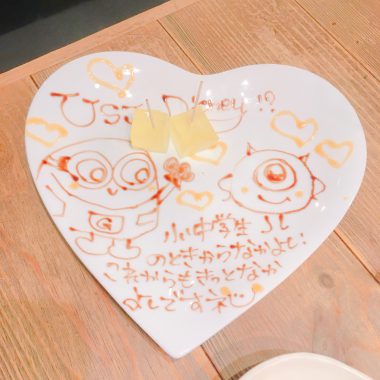 USJ Disney!?
G
小中学生
のときからなかよし!
これからもきっとなか
よしですネ